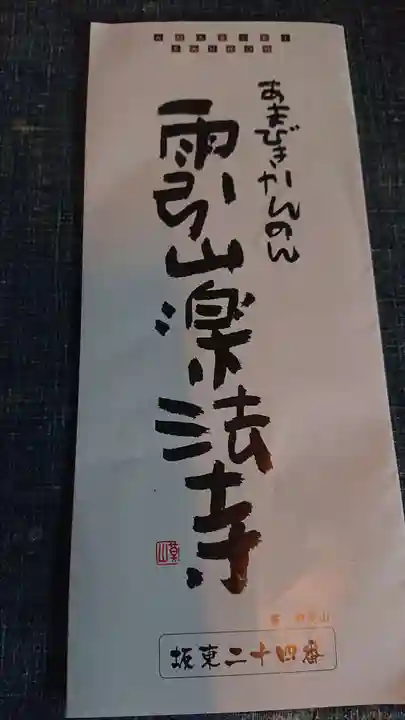 あまびきかんのん
雨引山楽法寺
坂東二十四番